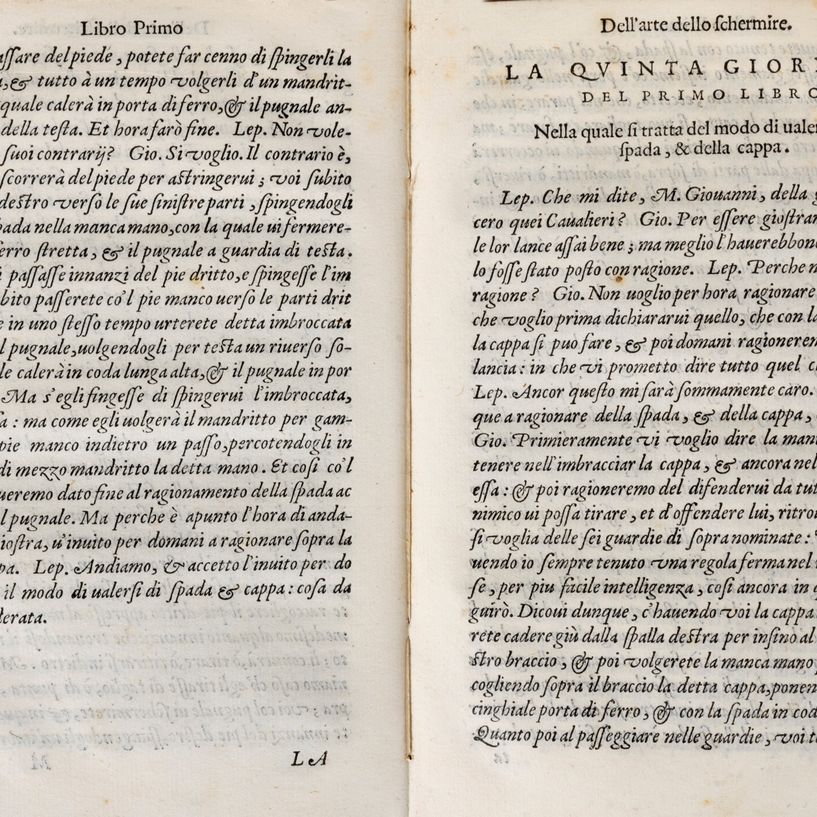 Libro Primo
assare del piede, potete far cenno di spingerli la
a, & tutto à un tempo volgerli d'un mandrit-
quale calerà in porta di ferro, & il pugnale an-
della testa. Et hora farò fine. Lep. Non vole-
suoi contrarij? Gio. Si voglio. Il contrario è,
scorrerà del piede per astringerui; voi subito
destro verso le sue sinistre parti, spingendogli
pada nella manca mano, con la quale ui fermere-
erro stretta, & il pugnale a guardia di testa.
i passasse innanzi del pie dritto, e spingesse l'im
bito passerete co'l pie manco uerso le parti drit
e in uno stesso tempo urterete detta imbroccata
l pugnale, uolgendogli per testa un riuerso so-
le calerà in coda lunga alta, & il pugnale in por
Ma s'egli fingesse di spingerui l'imbroccata,
a: ma come egli uolgerà il mandritto per gam-
pie manco indietro un passo, percotendogli in
di mezzo mandritto la detta mano. Et cosi co'l
ueremo dato fine al ragionamento della spada ac
l pugnale. Ma perche è apunto l'hora di anda-
iostra, u'inuito per domani a ragionare sopra la
pa. Lep. Andiamo, & accetto l'inuito per do
il modo di ualersi di spada & cappa: cosa da
derata.
LA
Dell'arte dello schermire.
LA QVINTA GIOR
DEL PRIMO LIBRO
Nella quale si tratta del modo di ualer
spada, & della cappa.
Lep. Che mi dite, M. Giouanni, della g
cero quei Caualieri? Gio. Per essere giostran
le lor lance assai bene; ma meglio l'hauerebbono
lo fosse stato posto con ragione. Lep. Perche n
ragione? Gio. Non uoglio per hora ragionare
che voglio prima dichiararui quello, che con la
la cappa si può fare, & poi domani ragionerem
lancia: in che vi prometto dire tutto quel c
Lep. Ancor questo mi sarà sommamente caro.
que a ragionare della spada, & della cappa,
Gio. Primieramente vi voglio dire la mani
tenere nell'imbracciar la cappa, & ancora nel
essa: & poi ragioneremo del difenderui da tut
nimico ui possa tirare, et d'offendere lui, ritrou
si voglia delle sei guardie di sopra nominate:
uendo io sempre tenuto vna regola ferma nel
se, per piu facile intelligenza, cosi ancora in q
guirò. Dicoui dunque, c'hauendo voi la cappa
rete cadere giù dalla spalla destra per insino al
stro braccio, & poi volgerete la manca mano
cogliendo sopra il braccio la detta cappa, ponen
cinghiale porta di ferro, & con la spada in cod
Quanto poi al passeggiare nelle guardie, voi t